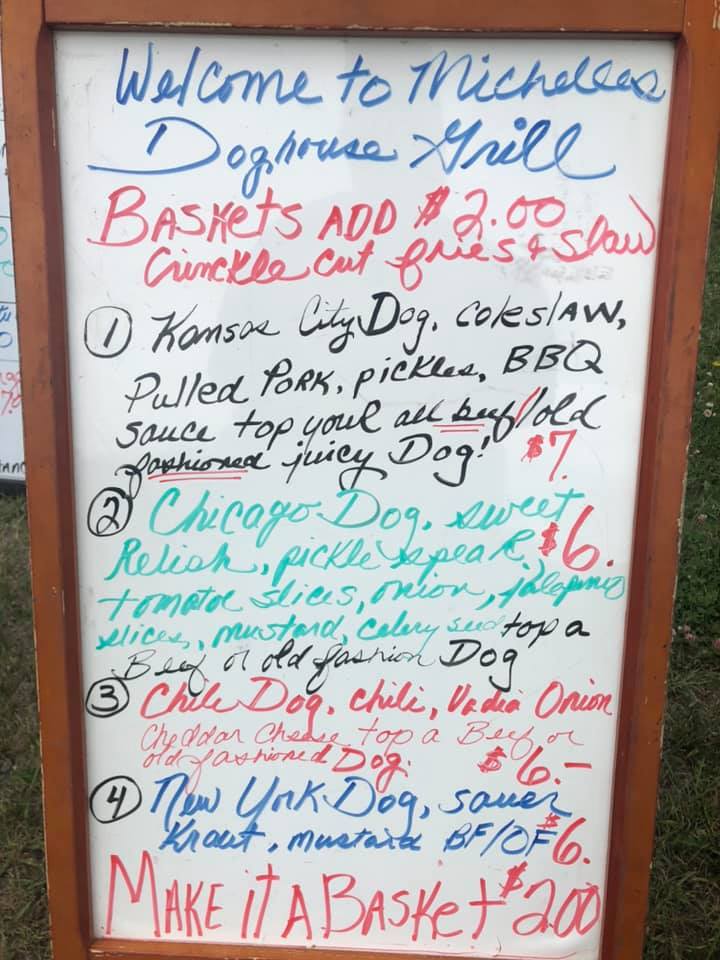 Welcome to Michelles
Doghouse Grill
BASKETS ADD $2.00
Crinckle cut fries & slaw
① Kansas City Dog, coleslAW,
Pulled PORK, pickles, BBQ
sauce top your all beef/old
fashioned juicy Dog! $7.
② Chicago Dog, sweet
Relish, pickle spear, $6.
tomatoe slices, onion, jalapeno
slices, mustard, celery seed top a
Beef or old fashion Dog
③ Chile Dog, chili, Vadia Onion
Cheddar Cheese top a Beef or
old fashioned Dog. $6.-
④ New York Dog, sauer
Kraut, mustard BF/OF $6.
MAKE iT A BASKET $2.00